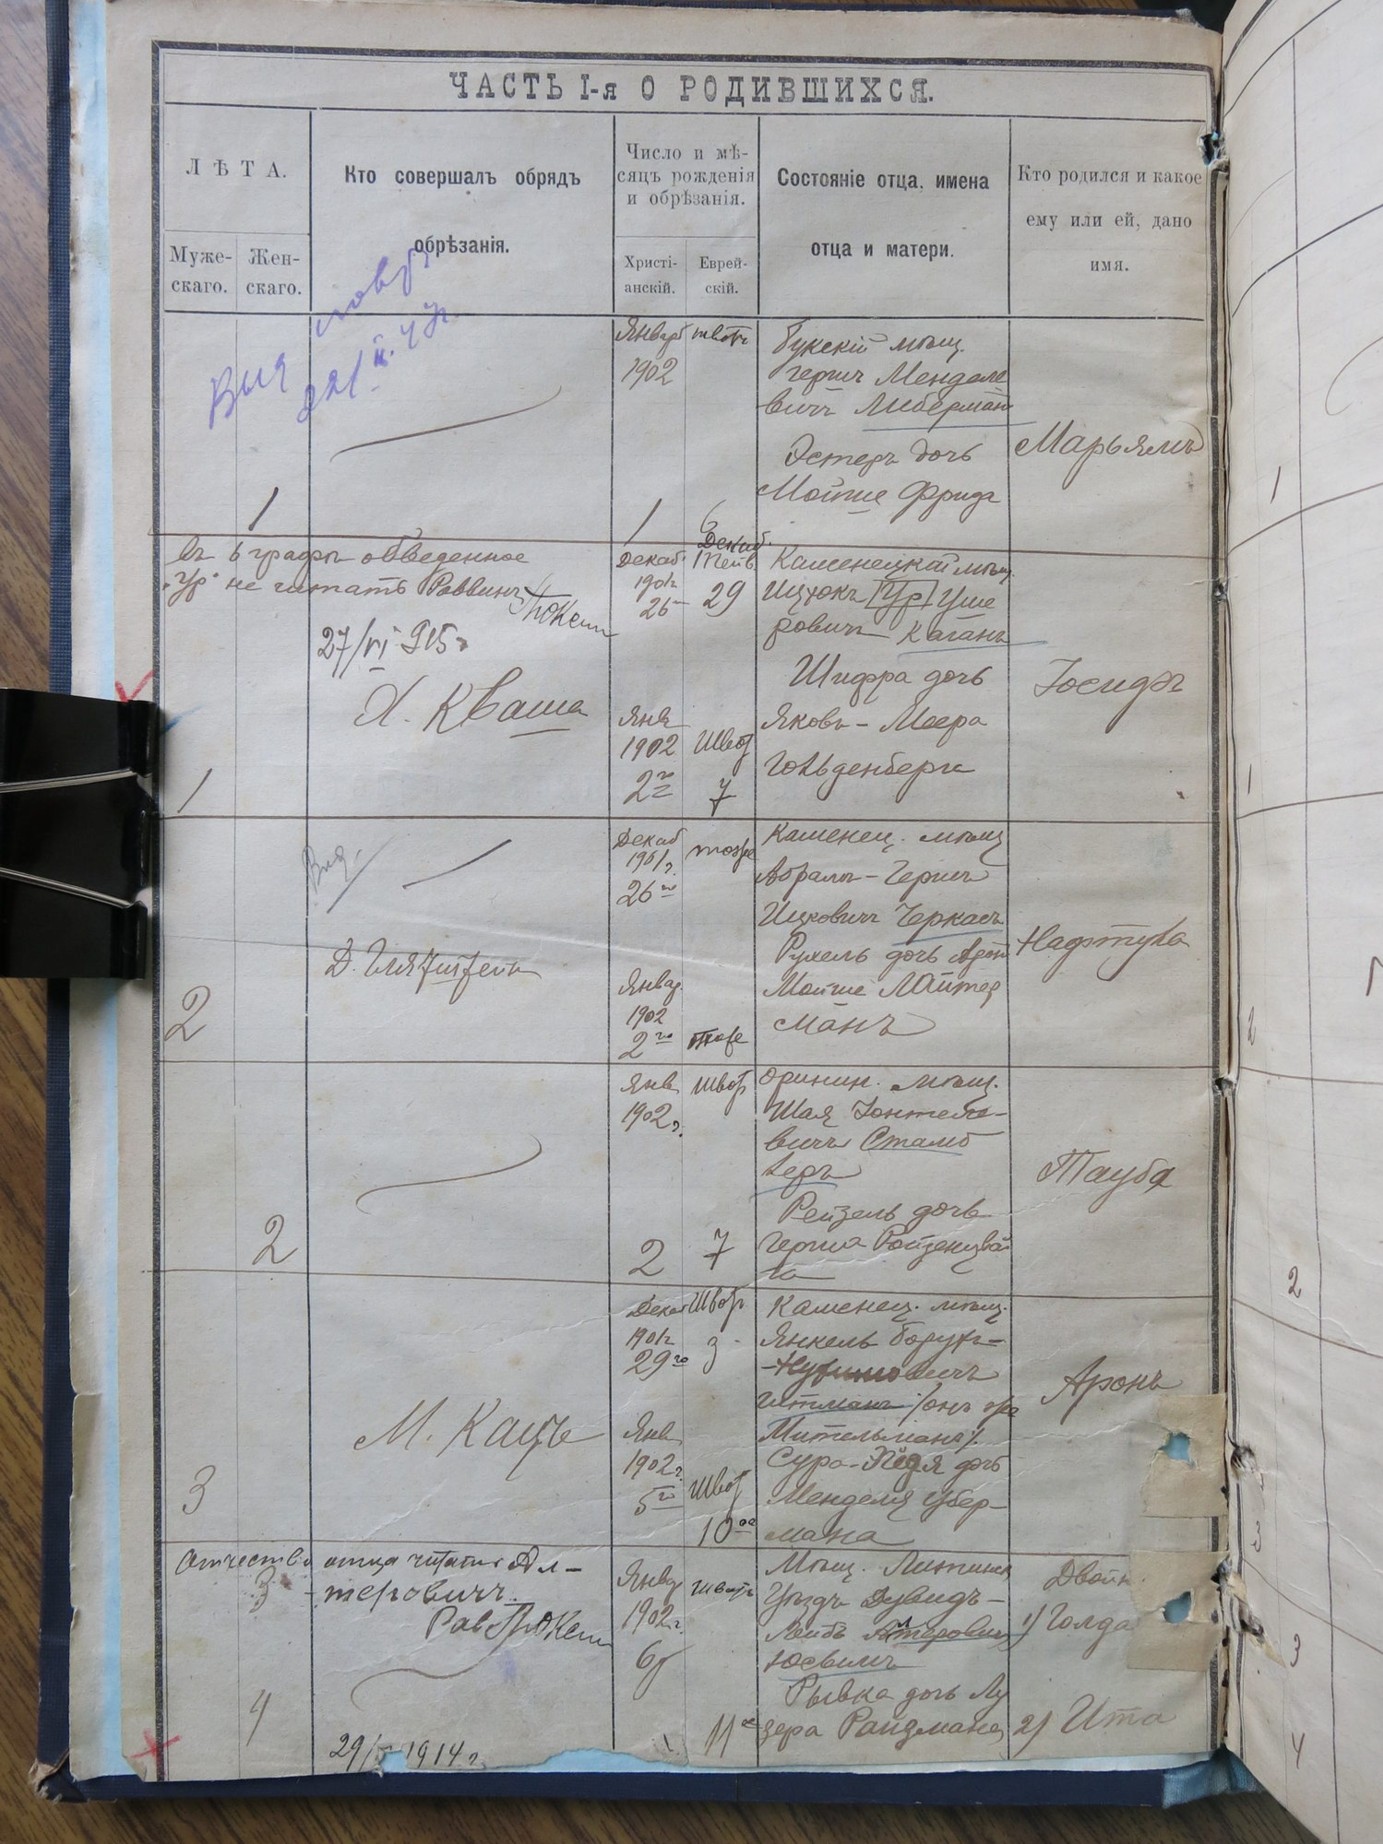 ЧАСТЬ I-я О РОДИВШИХСЯ.
ЛѢТА.
Муже-
скаго.
Жен-
скаго.
Кто совершалъ обрядъ
обрѣзанія.
Число и мѣ-
сяцъ рожденія
и обрѣзанія.
Христі-
анскій.
Еврей-
скій.
Состояніе отца, имена
отца и матери.
Кто родился и какое
ему или ей, дано
имя.
1
Январь
1902
1
6
мѣщ.
Гершъ Менделе
вичъ Либерманъ
Эстеръ дочь
Мойше Фрида
Марьямъ
въ 6 графѣ обведенное
"Ур" не читать Раввинъ
27/VI 915 г
Х. Кваша
1
Декаб.
1901 г
26
29
Янв
1902
2го
7
Каменецкій мѣщ.
Ицхокъ Ур Уше
ровичъ Каганъ
Шифра дочь
Яковъ-Меера
Гольденберга
Іосифъ
2
Декаб
1901 г.
26го
Январ.
1902
2го
Каменец. мѣщ
Абрамъ-Гершъ
Ицковичъ Черкасъ
Рухель дочь Аронъ
Мойше Лойтер
манъ
Нафтула
2
Янв
1902 г.
2
7
Оринин. мѣщ.
Шая
вичъ Стамб
леръ
Рейзель дочь
Герша Ройзенцвай
га
Тауба
3
М. Кацъ
Декаб
1901 г
29го
3
Янв
1902 г.
5го
10го
Каменец. мѣщ.
Янкель Борухъ-
Гитманъ /онъ же
Мительманъ/.
Сура-Хая дочь
Менделя Убер-
мана
Аронъ
Отчество отца читать Ал-
теровичъ.
3
4
29/ 1914 г.
Январ
1902 г.
6
11
Мѣщ. Литинск
Уѣзда Дувидъ-
Лейбъ Алтеровичъ
Юсвимъ
Рывка дочь Лу
зера Райзмана
Двойн.
1) Голда
2) Ита
1
1
2
2
3
3
4